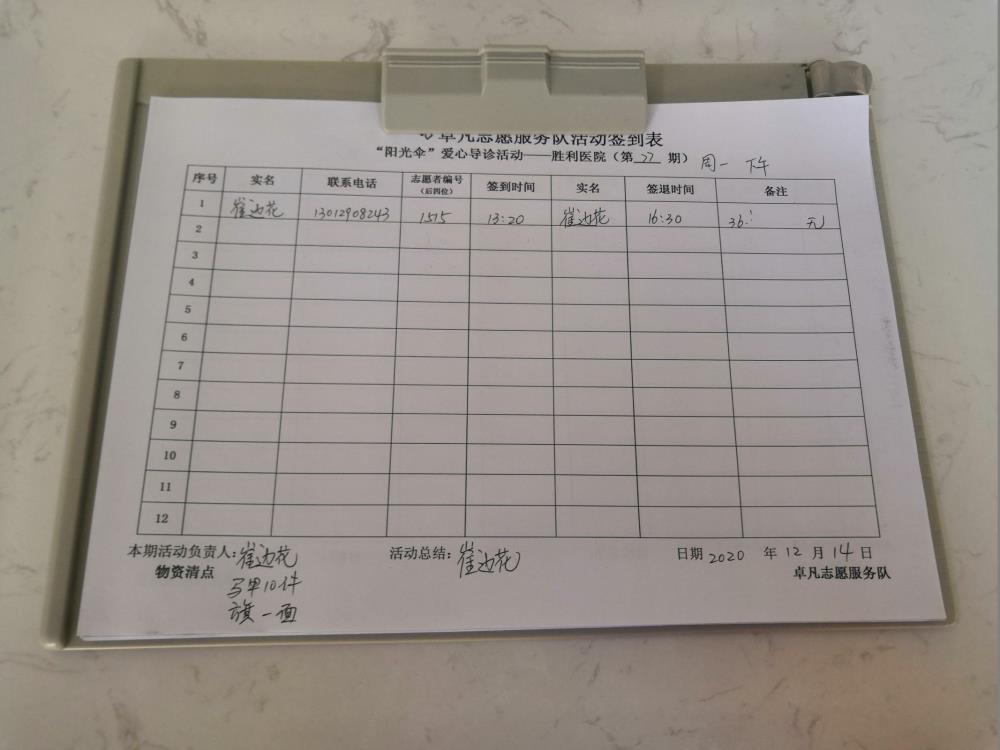 卓凡志愿服务队活动签到表
“阳光伞”爱心导诊活动——胜利医院（第 27 期） 周一 下午
序号 实名 联系电话 志愿者编号（后四位） 签到时间 实名 签退时间 备注
1 崔边花 13012908243 1515 13:20 崔边花 16:30 无
2
3
4
5
6
7
8
9
10
11
12
本期活动负责人：崔边花 活动总结：崔边花 日期 2020 年 12 月 14 日
物资清点 卓凡志愿服务队
马甲10件
旗一面